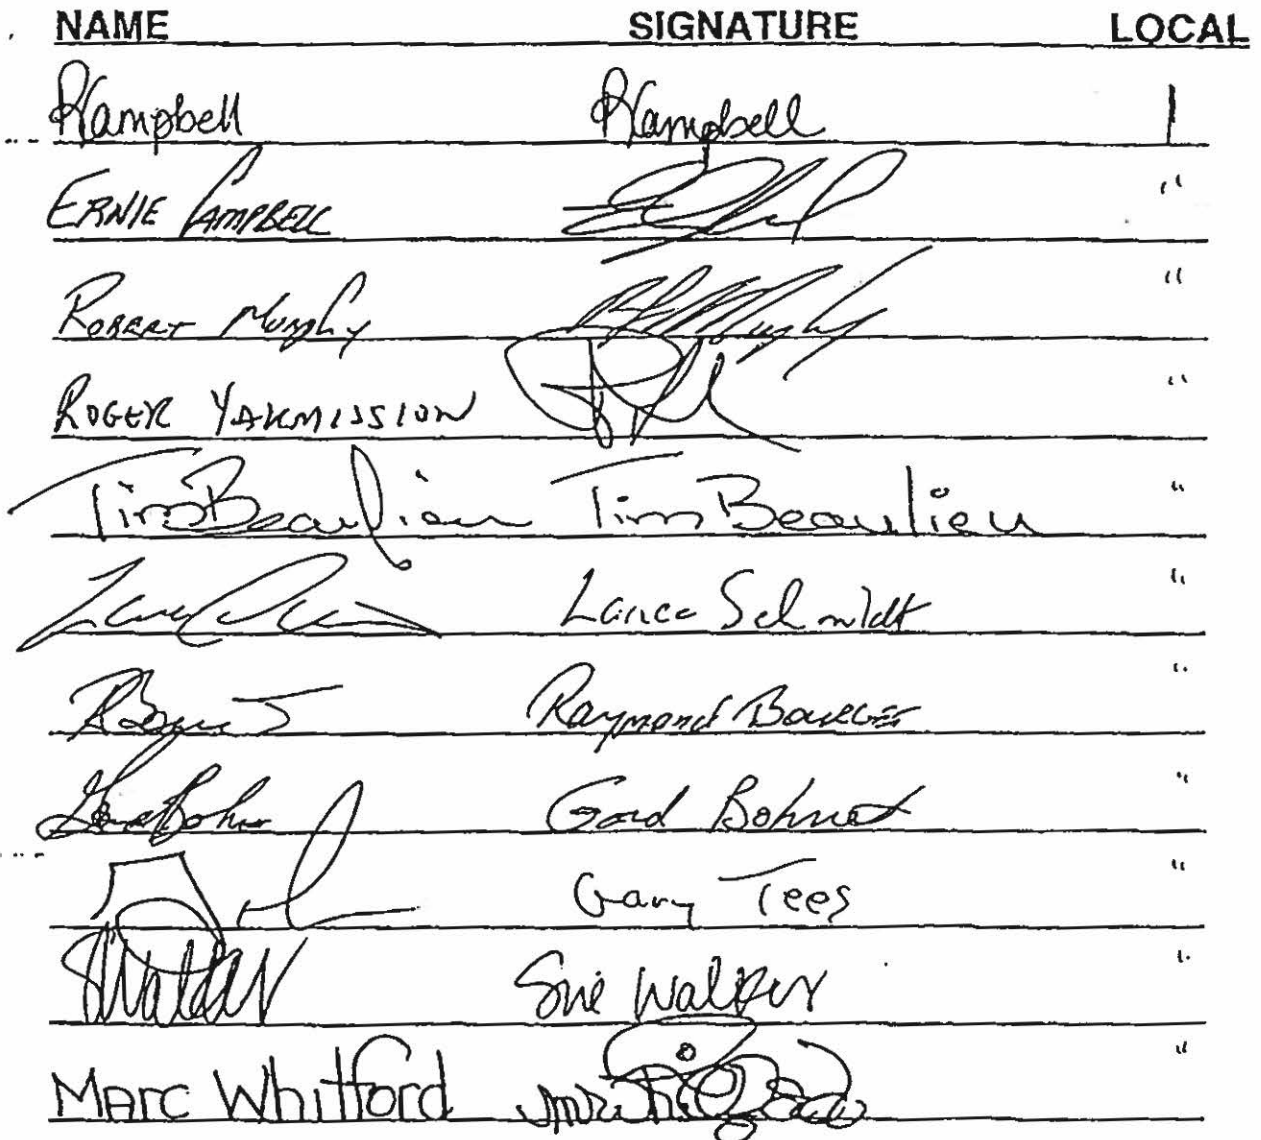 NAME SIGNATURE LOCAL
RCampbell RCampbell 1
ERNIE CAMPBELL "
ROBERT Murphy Murphy "
ROGER YAKMISSION "
Tim Beaulieu Tim Beaulieu "
Lance Schmidt "
Raymond "
Gord Bohnet "
Gary Tees "
SWalker Sue Walker "
Marc Whitford "